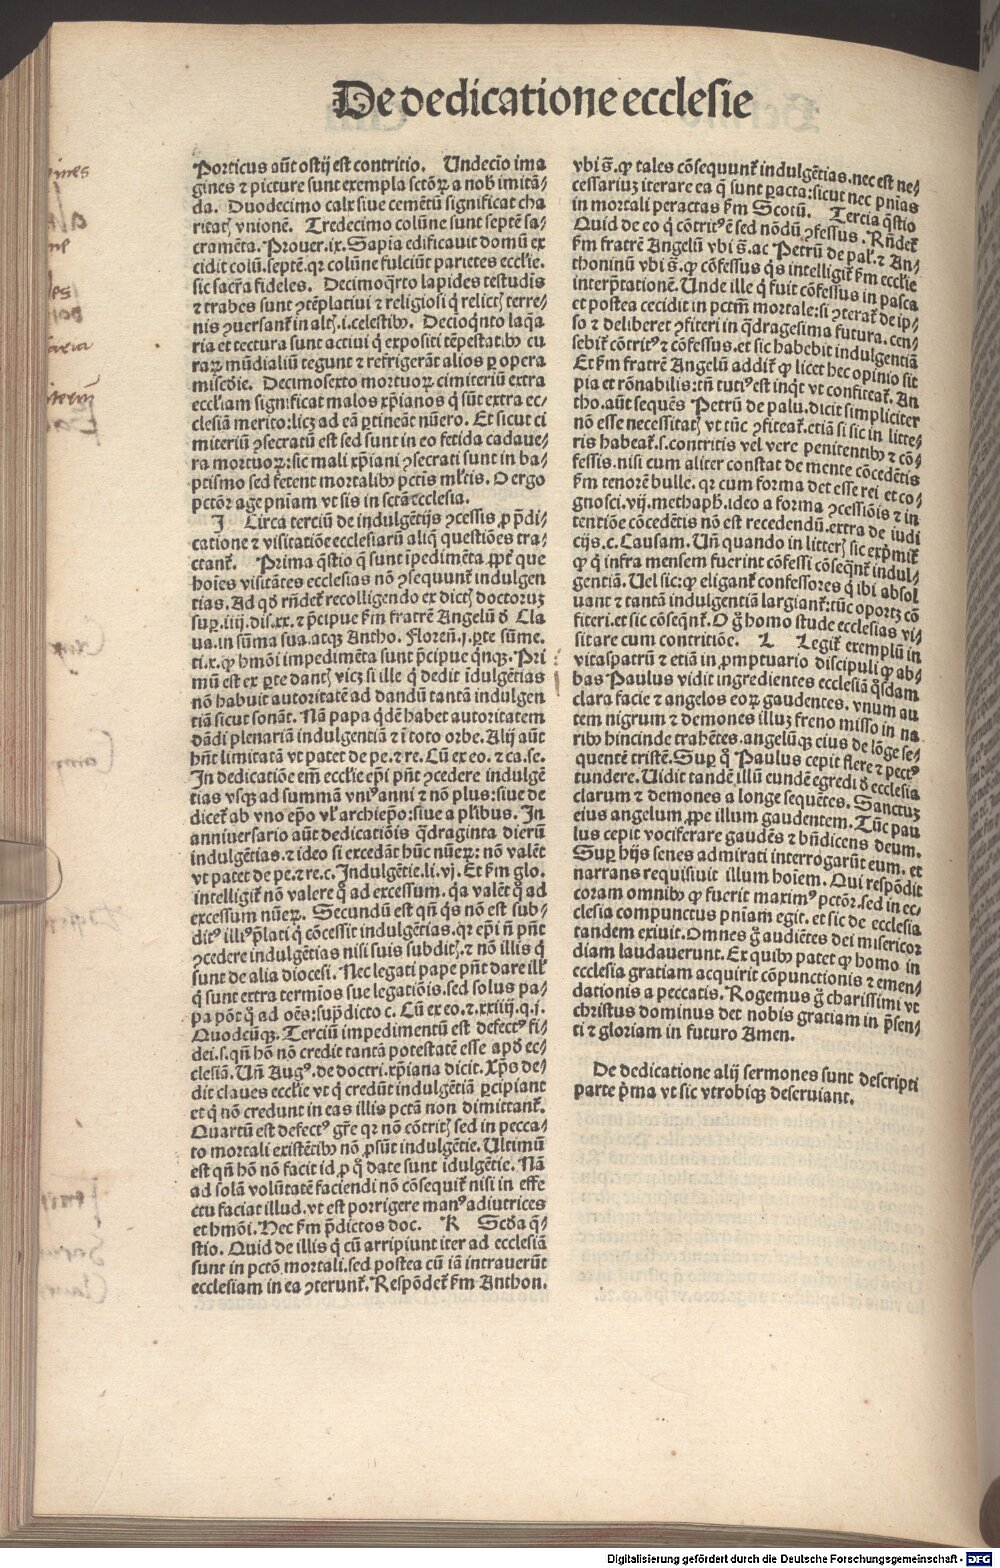 De dedicatione ecclesie
Porticus aūt ostij est contritio. Undecīo ima
gines ⁊ picture sunt exempla sctōꝝ a nob̄ imitā⸗
da. Duodecimo calx siue cemētū significat cha
ritatꝭ vnionē. Tredecimo colūne sunt septē sa⸗
cramēta. Prouer. ix. Sapīa edificauit domū ex
cidit colū. septē. qꝛ colūne fulciūt parietes eccl̄ie.
sic sacr̄a fideles. Decimoq̄rto lapides testudīs
⁊ trabes sunt ꝯtēplatiui ⁊ religiosi q̇ relictꝭ terre⸗
nis ꝯuersant̄ in altꝭ.i.celestibꝰ. Decioqͥnto laq̄a
ria et tectura sunt actiui q̇ expositi tēpestatibꝰ cu
raꝝ mūdialiū tegunt ⁊ refrigerāt alios ꝑ opera
miscd̄ie. Decimosexto mortuoꝝ cimiteriū extra
eccl̄iam significat malos xp̄ianos q̇ sūt extra ec⸗
clesiā merito: licꝫ ad eā ꝑtineāt nūero. Et sicut ci
miteriū ꝯsecratū est sed sunt in eo fetida cadaue⸗
ra mortuoꝝ: sic mali xp̄iani ꝯsecrati sunt in ba⸗
ptismo sed fetent mortalibꝰ pctīs ml̄tis. O ergo
pctōr age pniam vt sis in sctā ecclesia.
J Circa terciū de indulgētijs ꝯcessis ꝓ p̄di⸗
catione ⁊ visitatiōe ecclesiarū aliq̄ questiōes tra⸗
ctant̄. Prima q̄stio q̄ sunt īpedimēta ꝓpt̄ que
hoīes visitātes ecclesias nō ꝯsequunt̄ indulgen
tias. Ad qd̄ rn̄det̄ recolligendo ex dictꝭ doctoruꝫ
suꝑ .iiij. dis. xx. ⁊ p̄cipue ẜm fratrē Angelū d̄ Cla
ua. in sūma sua. atqꝫ Antho. Floreñ. j. ꝑte sūme.
ti. x. qꝙ hmōi impedimēta sunt p̄cipue qͥnqꝫ. Pri
mū est ex ꝑte dantꝭ vicꝫ si ille q̇ dedit īdulgētias
nō habuit autoritatē ad dandū tantā indulgen
tiā sicut sonāt. Nā papa qͥdē habet autoritatem
dādi plenariā indulgentiā ⁊ ī toto orbe. Alij aūt
hn̄t limitatā vt patet de pe. ⁊ re. Cū ex eo. ⁊ ca. se.
In dedicatiōe em̄ eccl̄ie ep̄i pn̄t ꝯcedere indulgē
tias vsqꝫ ad summā vniꝰ anni ⁊ nō plus: siue de
dicet̄ ab vno ep̄o vl̓ archiep̄o: siue a pl̓ibus. In
anniuersario aūt dedicatiōis q̄draginta dierū
indulgētias. ⁊ ideo si excedāt hūc nūeꝝ: nō valēt
vt patet de pe. ⁊ re. c. Indulgētie. li. vj. Et ẜm glo.
intelligit̄ nō valere qͦ ad excessum. qͥa valēt qͦ ad
excessum nūeꝝ. Secundū est qn̄ qͥs nō est sub⸗
ditꝰ illi p̄lati q̇ cōcessit indulgētias. qꝛ ep̄i ñ pn̄t
ꝯcedere indulgētias nisi suis subditꝭ. ⁊ nō illis q̇
sunt de alia diocesi. Nec legati pape pn̄t dare ill̓
q̇ sunt extra termīos sue legatiōis. sed solus pa⸗
pa pōt qͦ ad oēs: sup̄dicto c. Cū ex eo. ⁊. xxiiij. q. j.
Quodcūqꝫ. Terciū impedimentū est defectꝰ fi⸗
dei. s. qn̄ hō nō credit tantā potestatē esse apd̄ ec⸗
clesiā. Uñ Augꝰ. de doctri. xp̄iana dicit. Xp̄s de⸗
dit claues eccl̄ie vt q̇ credūt indulgētiā ꝑcipiant
et q̇ nō credunt in eas illis pctā non dimittant̄.
Quartū est defectꝰ gr̄e qꝛ nō cōtritꝭ sed in pecca⸗
to mortali existētibꝰ nō ꝓsūt indulgētie. Ultimū
est qn̄ hō nō facit id ꝓ q̊ date sunt īdulgētie. Nā
ad solā volūtatē faciendi nō cōsequit̄ nisi in effe
ctu faciat illud. vt est porrigere manꝰ adiutrices
et hmōi. Hec ẜm p̄dictos doc. K Scd̄a q̄⸗
stio. Quid de illis q̇ cū arripiunt iter ad ecclesiā
sunt in pctō mortali. sed postea cū iā intrauerūt
ecclesiam in ea ꝯterunt̄. Respōdet̄ ẜm Anthon.
vbi s̄. qꝙ tales cōsequunt̄ indulgētias. nec est ne⸗
cessariuꝫ iterare ea q̄ sunt ꝑacta: sicut nec pnīas
in mortali peractas ẜm Scotū. Tercia q̄stio
Quid de eo q̇ cōtritꝰ ē sed nōdū ꝯfessus. Rn̄det̄
ẜm fratrē Angelū vbi s̄. ac Petrū de pal. ⁊ An⸗
thoninū vbi s̄. qꝙ cōfessus qͥs intelligit̄ ẜm eccl̄ie
interp̄tationē. Unde ille q̇ fuit cōfessus in pasca
et postea cecidit in pctm̄ mortale: si ꝯterat̄ de ip⸗
so ⁊ deliberet ꝯfiteri in q̄dragesima futura. cen⸗
sebit̄ cōtritꝰ ⁊ cōfessus. et sic habebit indulgentiā
Et ẜm fratrē Angelū addit̄ qꝙ licet hec opinio sit
pia et rōnabilis: tn̄ tutiꝰ est inqͥt vt confiteat̄. An
tho. aūt sequēs Petrū de palu. dicit simpliciter
nō esse necessitatꝭ vt tūc ꝯfiteat̄. etiā si sic in litte⸗
ris habeat̄. s. contritis vel vere penitentibꝰ ⁊ cō⸗
fessis. nisi cum aliter constat de mente cōcedētis
ẜm tenorē bulle. qꝛ cum forma det esse rei et co⸗
gnosci. vij. methaph̄. ideo a forma ꝯcessiōis ⁊ in
tentiōe cōcedētis nō est recedendū. extra de iudi
cijs. c. Causam. Uñ quando in litterꝭ sic exp̄mit̄
qꝙ q̇ infra mensem fuerint cōfessi cōseqn̄t̄ indul⸗
gentiā. Uel sic: qꝙ eligant̄ confessores q̇ ibi absol
uant ⁊ tantā indulgentiā largiant̄: tūc oportꝫ cō
fiteri. et sic cōseqn̄t̄. O ḡ homo stude ecclesias vi⸗
sitare cum contritiōe. L Legit̄ exemplū in
vitaspatrū ⁊ etiā in ꝓmptuario discipuli qꝙ ab⸗
bas Paulus vidit ingredientes ecclesiā q̄sdam
clara facie ⁊ angelos eoꝝ gaudentes. vnum au
tem nigrum ⁊ demones illuꝫ freno misso in na
ribꝰ hincinde trahētes. angelūqꝫ eius de lōge se⸗
quentē tristē. Suꝑ qͦ Paulus cepit flere ⁊ pectꝰ
tundere. Uidit tandē illū eundē egredi d̄ ecclesia
clarum ⁊ demones a longe sequētes. Sanctuꝫ
eius angelum ꝓpe illum gaudentem. Tūc pau
lus cepit vociferare gaudēs ⁊ bn̄dicens deum.
Suꝑ hijs senes admirati interrogarūt eum. et
narrans requisiuit illum hoīem. Qui respōdit
coram omnibꝰ qꝙ fuerit maximꝰ pctōr. sed in ec⸗
clesia compunctus pniam egit. et sic de ecclesia
tandem exiuit. Omnes ḡ audiētes dei misericor
diam laudauerunt. Ex quibꝰ patet qꝙ homo in
ecclesia gratiam acquirit cōpunctionis ⁊ emen⸗
dationis a peccatis. Rogemus ḡ charissimi vt
christus dominus det nobis gratiam in p̄sen⸗
ti ⁊ gloriam in futuro Amen.
De dedicatione alij sermones sunt descripti
parte p̄ma vt sic vtrobiqꝫ deseruiant.
Digitalisierung gefördert durch die Deutsche Forschungsgemeinschaft - DFG